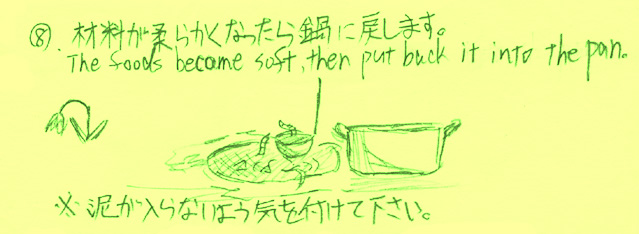 ⑧. 材料が柔らかくなったら鍋に戻します。
The foods become soft, then put back it into the pan.
※ 泥が入らないよう気を付けて下さい。